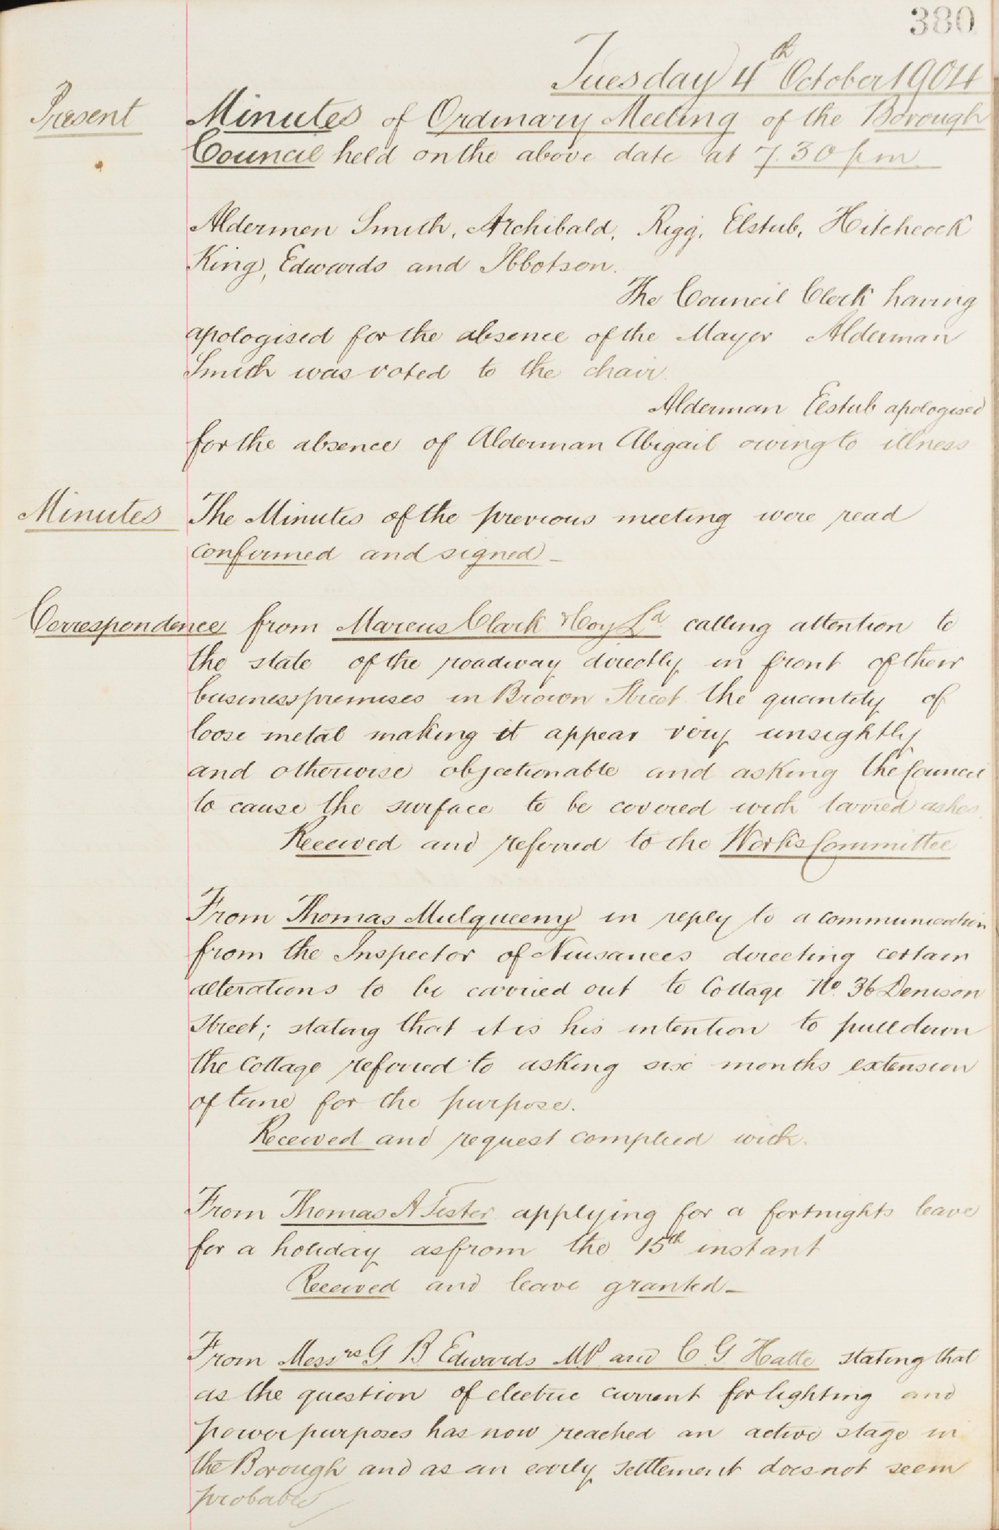 380
Tuesday 4th October 1904
Present
Minutes of Ordinary Meeting of the Borough
Council held on the above date at 7.30 pm
Aldermen Smith, Archibald, Rigg, Elstub, Hitchcock
King, Edwards and Ibbotson.
The Council Clerk having
apologised for the absence of the Mayor Alderman
Smith was voted to the chair.
Alderman Elstub apologised
for the absence of Alderman Abigail owing to illness
Minutes The Minutes of the previous meeting were read
confirmed and signed -
Correspondence from Marcus Clark & Coy Ld calling attention to
the state of the roadway directly in front of their
business premises in Brown Street the quantity of
loose metal making it appear very unsightly
and otherwise objectionable and asking the Council
to cause the surface to be covered with tarred ashes.
Received and referred to the Works Committee
From Thomas Mulqueeny in reply to a communication
from the Inspector of Nuisances directing certain
alterations to be carried out to Cottage No. 36 Denison
Street; stating that it is his intention to pull down
the Cottage referred to asking six months extension
of time for the purpose.
Received and request complied with.
From Thomas A Tester applying for a fortnights leave
for a holiday as from the 15th instant
Received and leave granted -
From Messrs G B Edwards MP and C G Hatte stating that
as the question of electric current for lighting and
power purposes has now reached an active stage in
the Borough and as an early settlement does not seem
probable